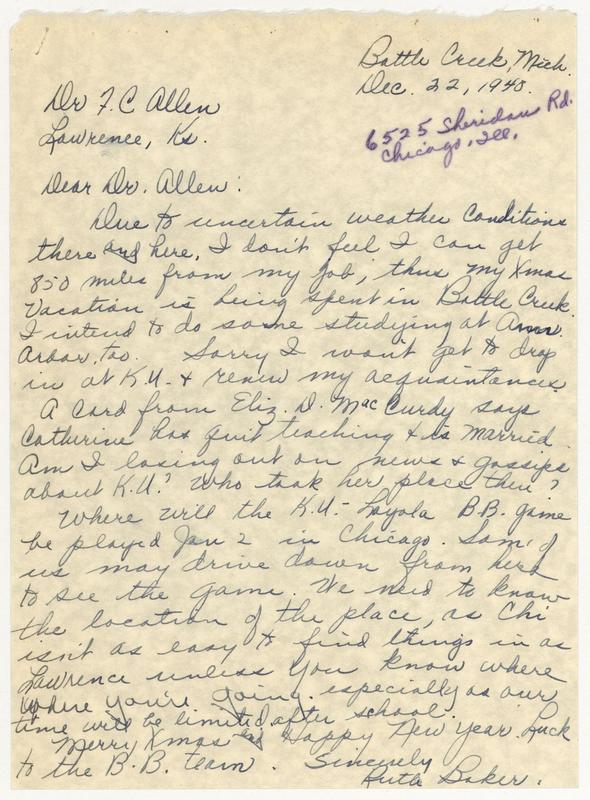 Battle Creek, Mich.
Dec. 22, 1940.
Dr F. C Allen
Lawrence, Ks.
6525 Sheridan Rd.
Chicago, Ill.
Dear Dr. Allen:
Due to uncertain weather conditions
there and here, I don't feel I can get
850 miles from my job; thus my Xmas
Vacation is being spent in Battle Creek.
I intend to do some studying at Ann
Arbor, too. Sorry I won't get to drop
in at K.U. & renew my acquaintances.
A card from Eliz. D. MacCurdy says
Catherine has quit teaching & is married.
Am I losing out on news & gossips
about K.U.? Who took her place then?
Where will the K.U.- Loyola B.B. game
be played Jan 2 in Chicago. Some of
us may drive down from here
to see the game. We need to know
the location of the place, as Chi
isn't as easy to find things in as
Lawrence unless you know where
where you're going. especially as our
time will be limited after school.
Merry Xmas and Happy New Year. Luck
to the B.B. team. Sincerely
Ruth Baker.